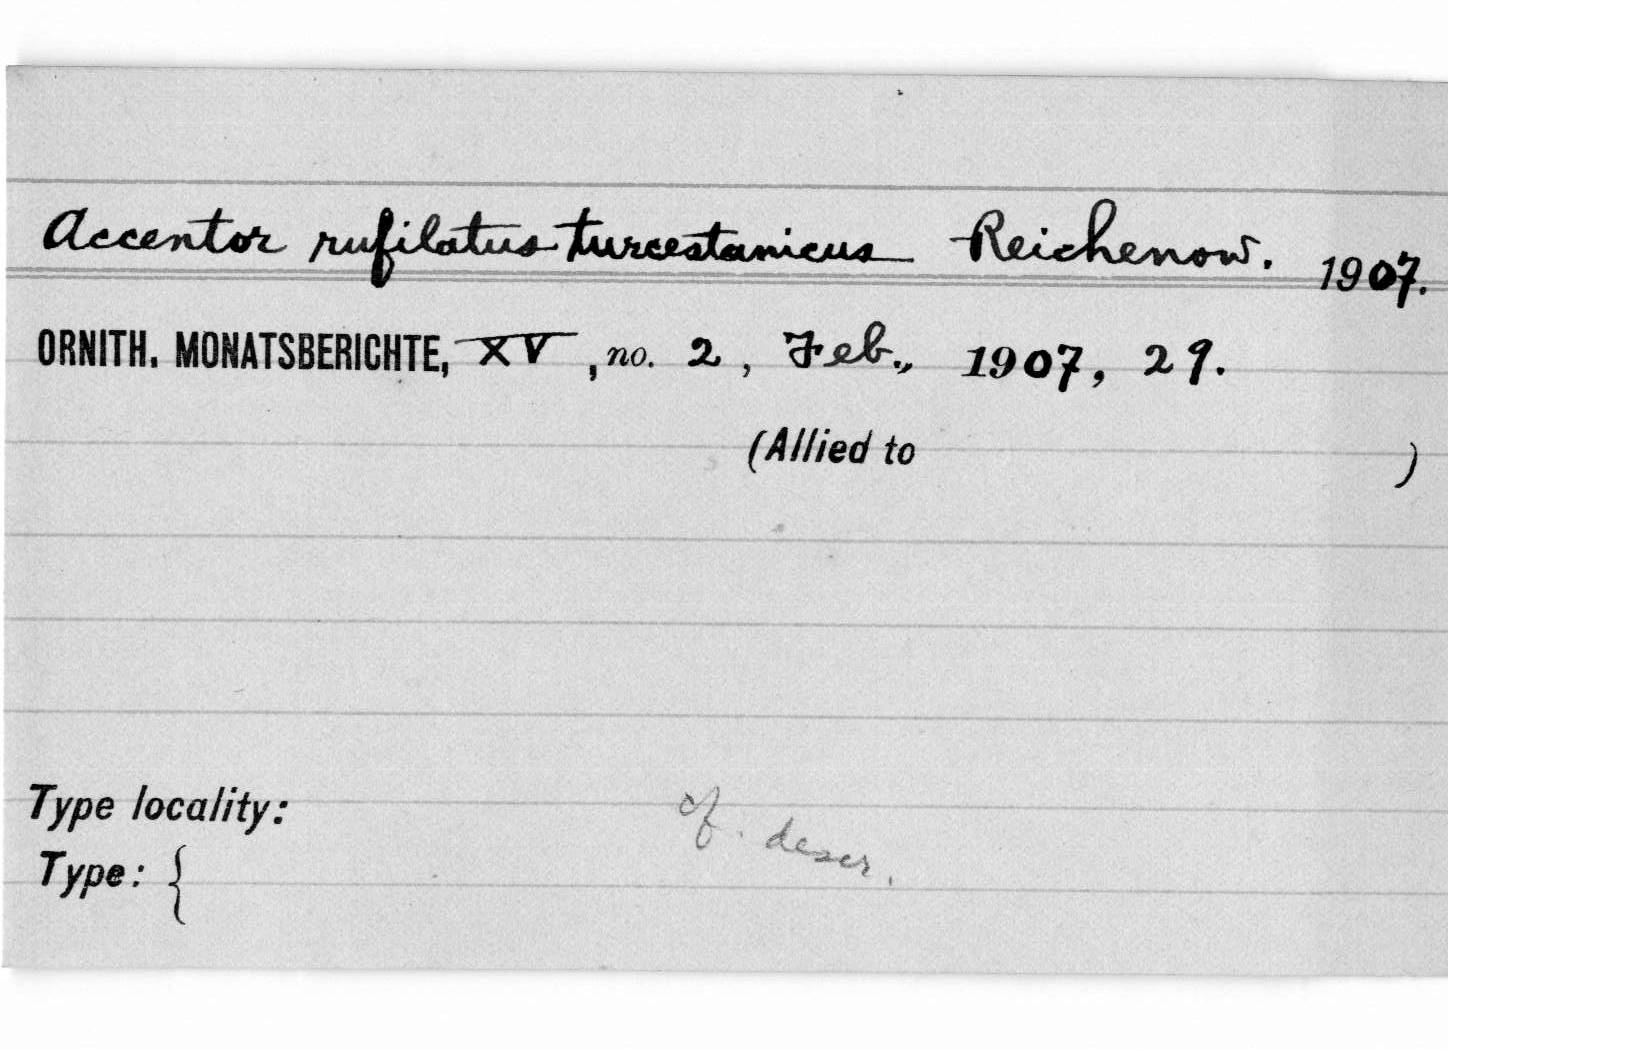 Accentor rufilatus turcestanicus Reichenow. 1907.
ORNITH. MONATSBERICHTE, XV, no. 2, Feb., 1907, 29.
(Allied to )
Type locality:
cf. descr.
Type: {